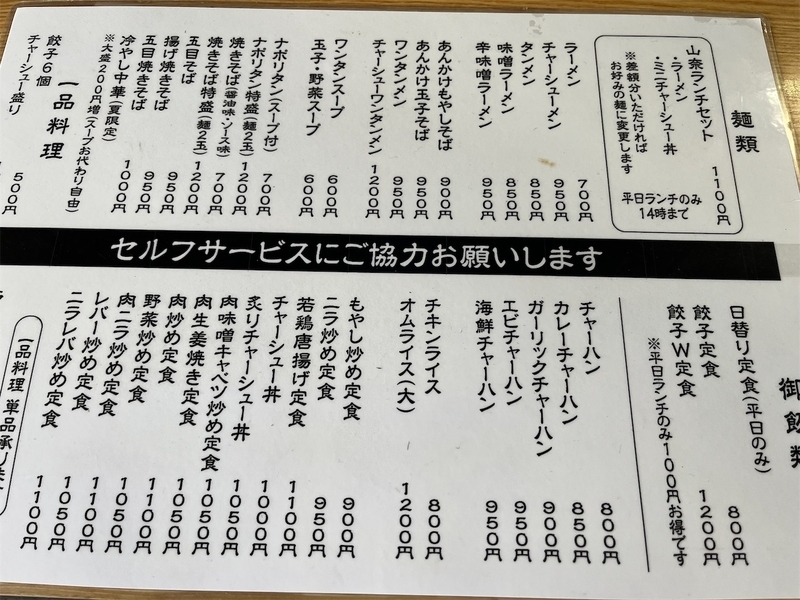 麺類
山奈ランチセット 1100円
・ラーメン
・ミニチャーシュー丼
※差額分いただければ
お好みの麺に変更します
平日ランチのみ
14時まで
ラーメン 700円
チャーシューメン 950円
タンメン 850円
味噌ラーメン 850円
辛味噌ラーメン 950円
あんかけもやしそば 900円
あんかけ玉子そば 950円
ワンタンメン 950円
チャーシューワンタンメン 1200円
ワンタンスープ 600円
玉子・野菜スープ 600円
ナポリタン(スープ付) 700円
ナポリタン特盛(麺2玉) 1200円
焼きそば(醤油味・ソース味) 700円
焼きそば特盛(麺2玉) 1200円
五目そば 950円
揚げ焼きそば 950円
五目焼きそば 950円
冷やし中華(夏限定) 1000円
※大盛200円増(スープお代わり自由)
一品料理
餃子6個
チャーシュー盛り 500円
セルフサービスにご協力お願いします
御飯類
日替り定食(平日のみ) 800円
餃子定食
餃子W定食 1200円
※平日ランチのみ100円お得です
チャーハン 800円
カレーチャーハン 850円
ガーリックチャーハン 900円
エビチャーハン 950円
海鮮チャーハン 950円
チキンライス 800円
オムライス(大) 1200円
もやし炒め定食 900円
ニラ炒め定食 950円
若鶏唐揚げ定食 1100円
チャーシュー丼 1000円
炙りチャーシュー丼 1050円
肉味噌キャベツ炒め定食 1050円
肉生姜焼き定食 1050円
肉炒め定食 1100円
野菜炒め定食 1050円
肉ニラ炒め定食 1100円
レバー炒め定食 1050円
ニラレバ炒め定食 1100円
一品料理 単品承ります